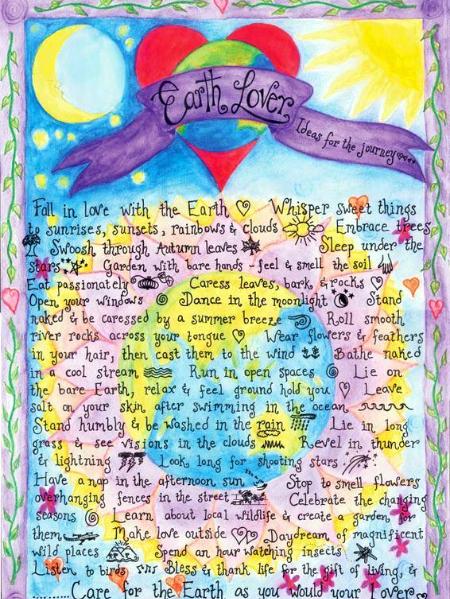 Earth Lover
Ideas for the journey....
Fall in love with the Earth Whisper sweet things
to sunrises, sunsets, rainbows & clouds Embrace trees
Swoosh through Autumn leaves Sleep under the
stars Garden with bare hands - feel & smell the soil
Eat passionately Caress leaves, bark & rocks
Open your windows Dance in the moonlight Stand
naked & be caressed by a summer breeze Roll smooth
river rocks across your tongue Wear flowers & feathers
in your hair, then cast them to the wind Bathe naked
in a cool stream Run in open spaces Lie on
the bare Earth, relax & feel ground hold you Leave
salt on your skin after swimming in the ocean
Stand humbly & be washed in the rain Lie in long
grass & see visions in the clouds Revel in thunder
& lightning Look long for shooting stars
Have a nap in the afternoon sun Stop to smell flowers
overhanging fences in the street Celebrate the changing
seasons Learn about local wildlife & create a garden for
them Make love outside Daydream of magnificent
wild places Spend an hour watching insects
Listen to birds Bless & thank life for the gift of living, &
......Care for the Earth as you would your Lover